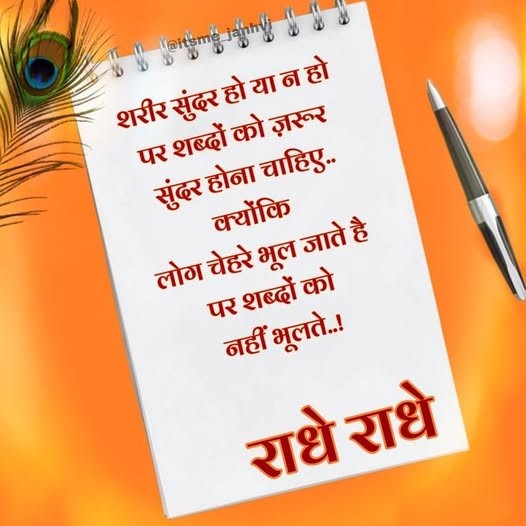 @itsme_janhvi
शरीर सुंदर हो या न हो
पर शब्दों को ज़रूर
सुंदर होना चाहिए..
क्योंकि
लोग चेहरे भूल जाते है
पर शब्दों को
नहीं भूलते..!
राधे राधे